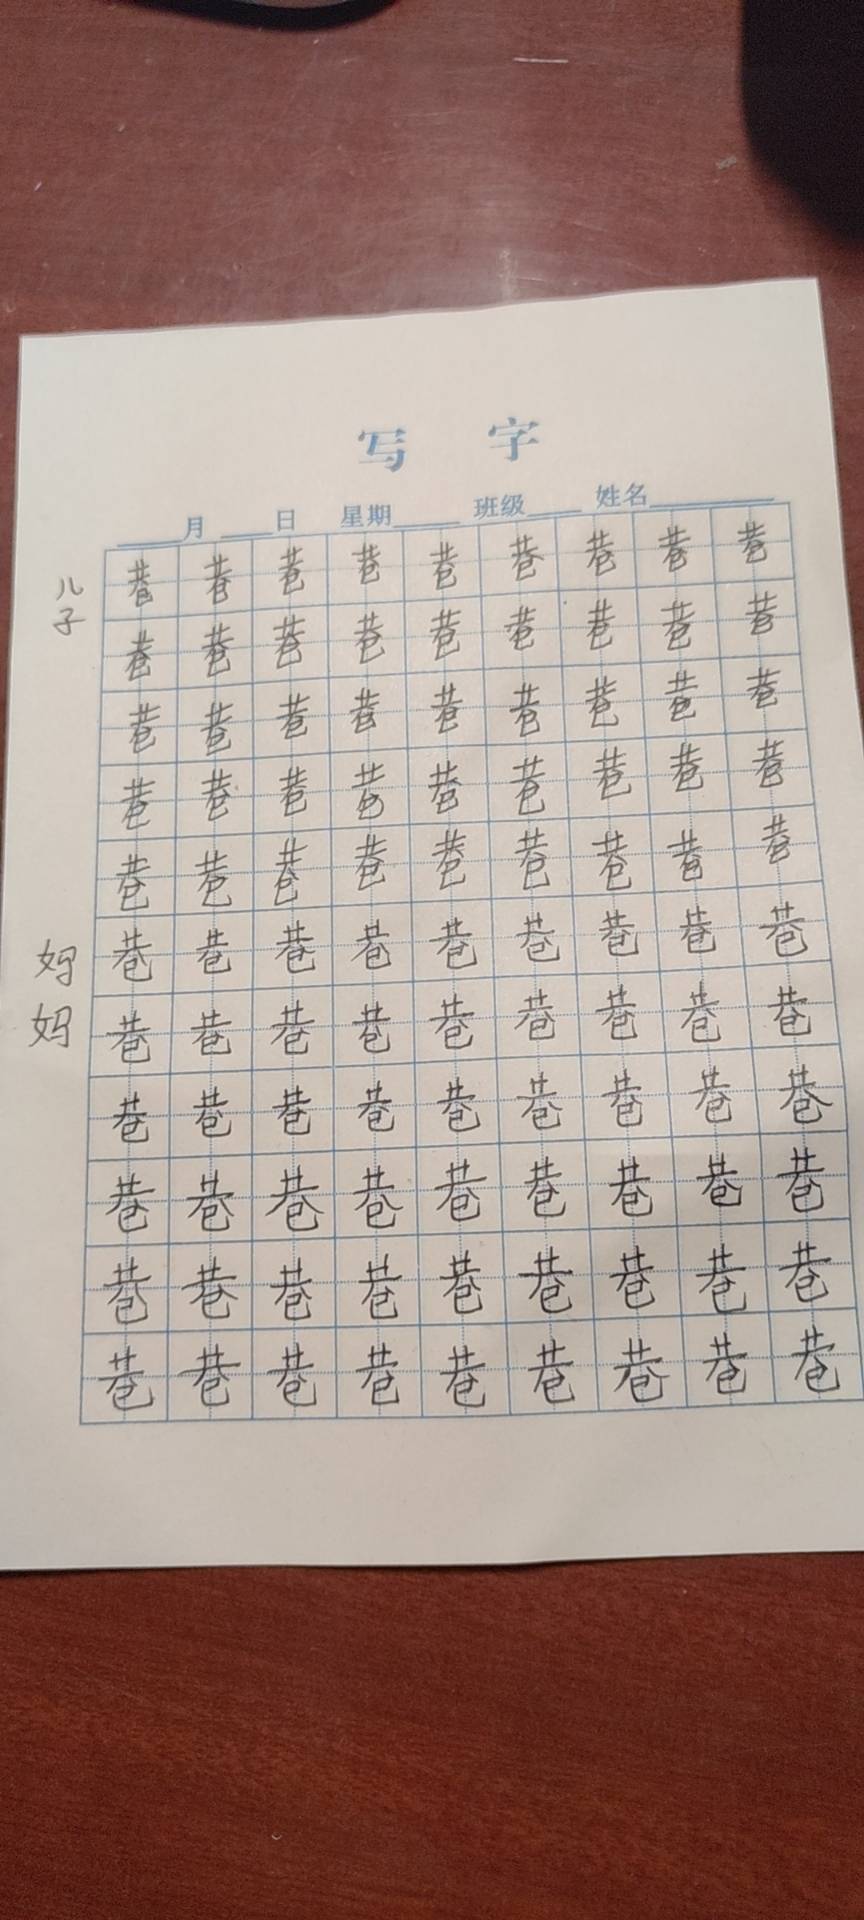 写 字
____月____日 星期____ 班级____ 姓名________
儿子
巷 巷 巷 巷 巷 巷 巷 巷 巷
巷 巷 巷 巷 巷 巷 巷 巷 巷
巷 巷 巷 巷 巷 巷 巷 巷 巷
巷 巷 巷 巷 巷 巷 巷 巷 巷
巷 巷 巷 巷 巷 巷 巷 巷 巷
妈妈
巷 巷 巷 巷 巷 巷 巷 巷 巷
巷 巷 巷 巷 巷 巷 巷 巷 巷
巷 巷 巷 巷 巷 巷 巷 巷 巷
巷 巷 巷 巷 巷 巷 巷 巷 巷
巷 巷 巷 巷 巷 巷 巷 巷 巷
巷 巷 巷 巷 巷 巷 巷 巷 巷